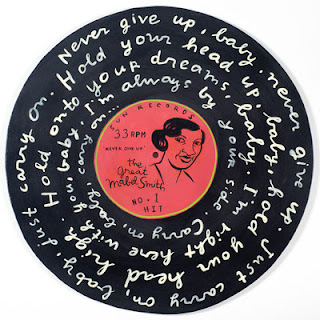 Never give up, baby, never give up. Just carry on, baby, just carry on.
Hold your head up, baby, hold your head high.
Hold onto your dreams, baby, I'm right here with you, baby.
I'm always by your side. Carry on, baby, carry on...
SUN RECORDS
33 RPM
"NEVER GIVE UP"
the
Great
Mabel Smith
NO. 1
HIT